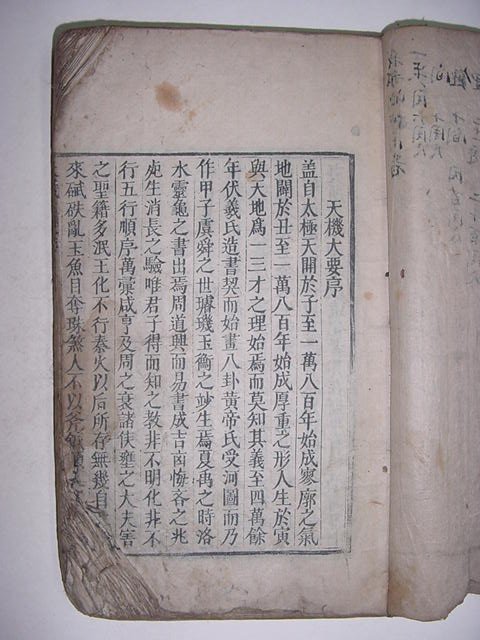 天機大要序
盖自太極天開於子至一萬八百年始成寥廓之氣
地闢於丑至一萬八百年始成厚重之形人生於寅
與天地爲一三才之理始焉而莫知其義至四萬餘
年伏羲氏造書契而始畫八卦黃帝氏受河圖而乃
作甲子虞舜之世璿璣玉衡之玅生焉夏禹之時洛
水靈龜之書出焉周道興而易書成吉凶悔吝之兆
死生消長之驗唯君子得而知之教非不明化非不
行五行順序萬彙咸亨及周之衰諸侯壅之大夫害
之聖籍多泯王化不行秦火以后所存無幾自
來碔砆亂玉魚目奪珠煞人不以斧